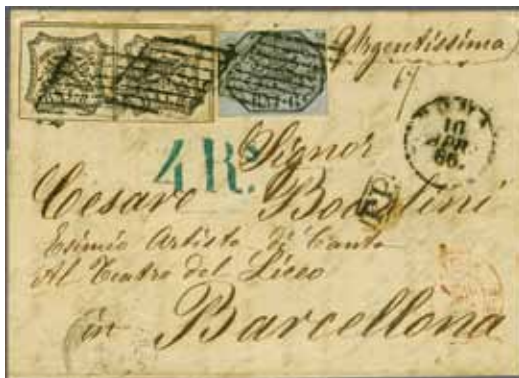 Urgentissima
ROMA
10
APR
66.
4 Rs.
Signor
Cesare
P.P.
Esimio Artista di Canto
Al Teatro del Liceo
in Barcellona